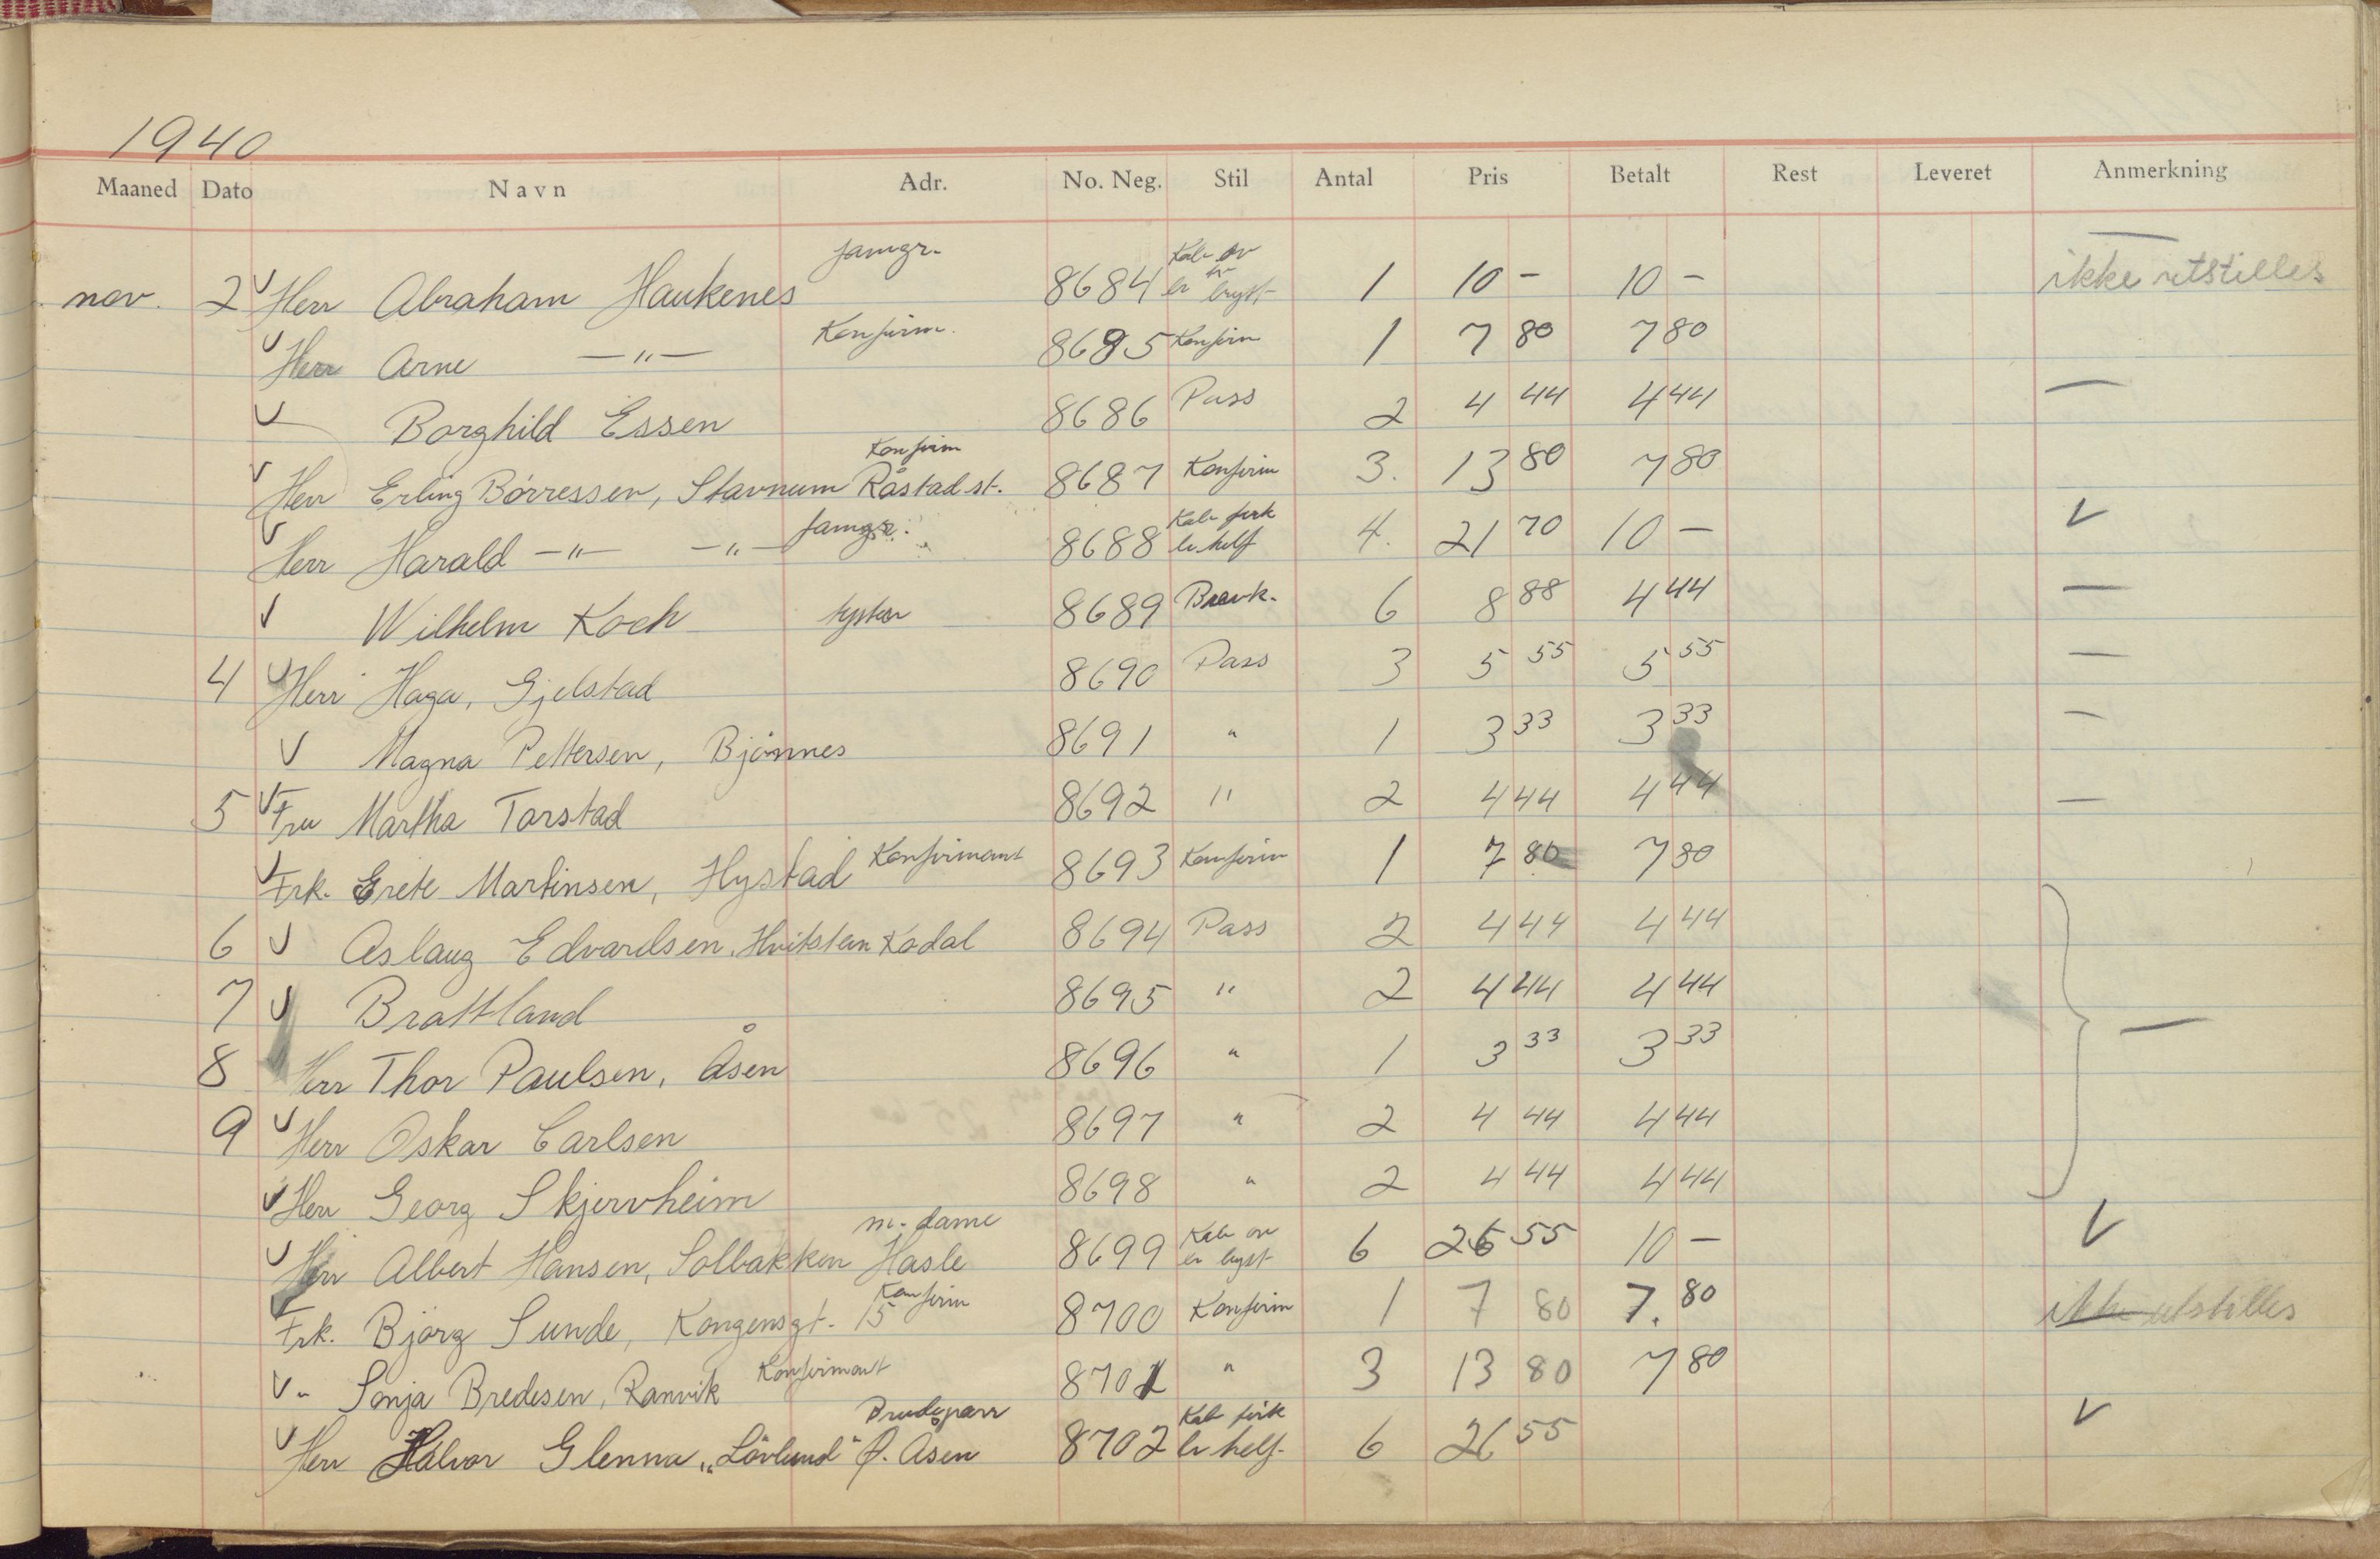 1940
Maaned Dato Navn Adr. No. Neg. Stil Antal Pris Betalt Rest Leveret Anmerkning
nov. 2 Herr Abraham Haukenes famgr. 8684 Kab br bryst 1 10 - 10 - ikke utstilles
Herr Arne —"— Konfirm. 8685 Konfirm 1 7 80 7 80
Borghild Essen 8686 Pass 2 4 44 4 44 —
Herr Erling Börressen, Stavnum Råstad st. Konfirm 8687 Konfirm 3. 13 80 7 80
Herr Harald —"— —"— famgr. 8688 Kab br helf 4. 21 70 10 — ✓
Wilhelm Koch tysker 8689 Brevk. 6 8 88 4 44 —
4 Herr Haga, Gjelstad 8690 Pass 3 5 55 5 55 —
Magna Pettersen, Bjönnes 8691 " 1 3 33 3 33 —
5 Fru Martha Torstad 8692 " 2 4 44 4 44 —
Frk. Grete Martinsen, Hystad Konfirmant 8693 Konfirm 1 7 80 7 80
6 Aslaug Edvardsen, Hvitstein Kodal 8694 Pass 2 4 44 4 44
7 Brattland 8695 " 2 4 44 4 44
8 Herr Thor Paulsen, Åsen 8696 " 1 3 33 3 33 —
9 Herr Oskar Carlsen 8697 " 2 4 44 4 44
Herr Georg Skjervheim 8698 " 2 4 44 4 44
Herr Albert Hansen, Solbakken Hasle m. dame 8699 Kab br bryst 6 26 55 10 — ✓
Frk. Björg Sunde, Kongensgt. 15 Konfirm 8700 Konfirm 1 7 80 7.80 ikke utstilles
" Sonja Bredesen, Ranvik Konfirmant 8701 " 3 13 80 7 80
Herr Halvor Glenna „Lövlund" Ø. Åsen Brudepar 8702 Kab br helf. 6 26 55 ✓